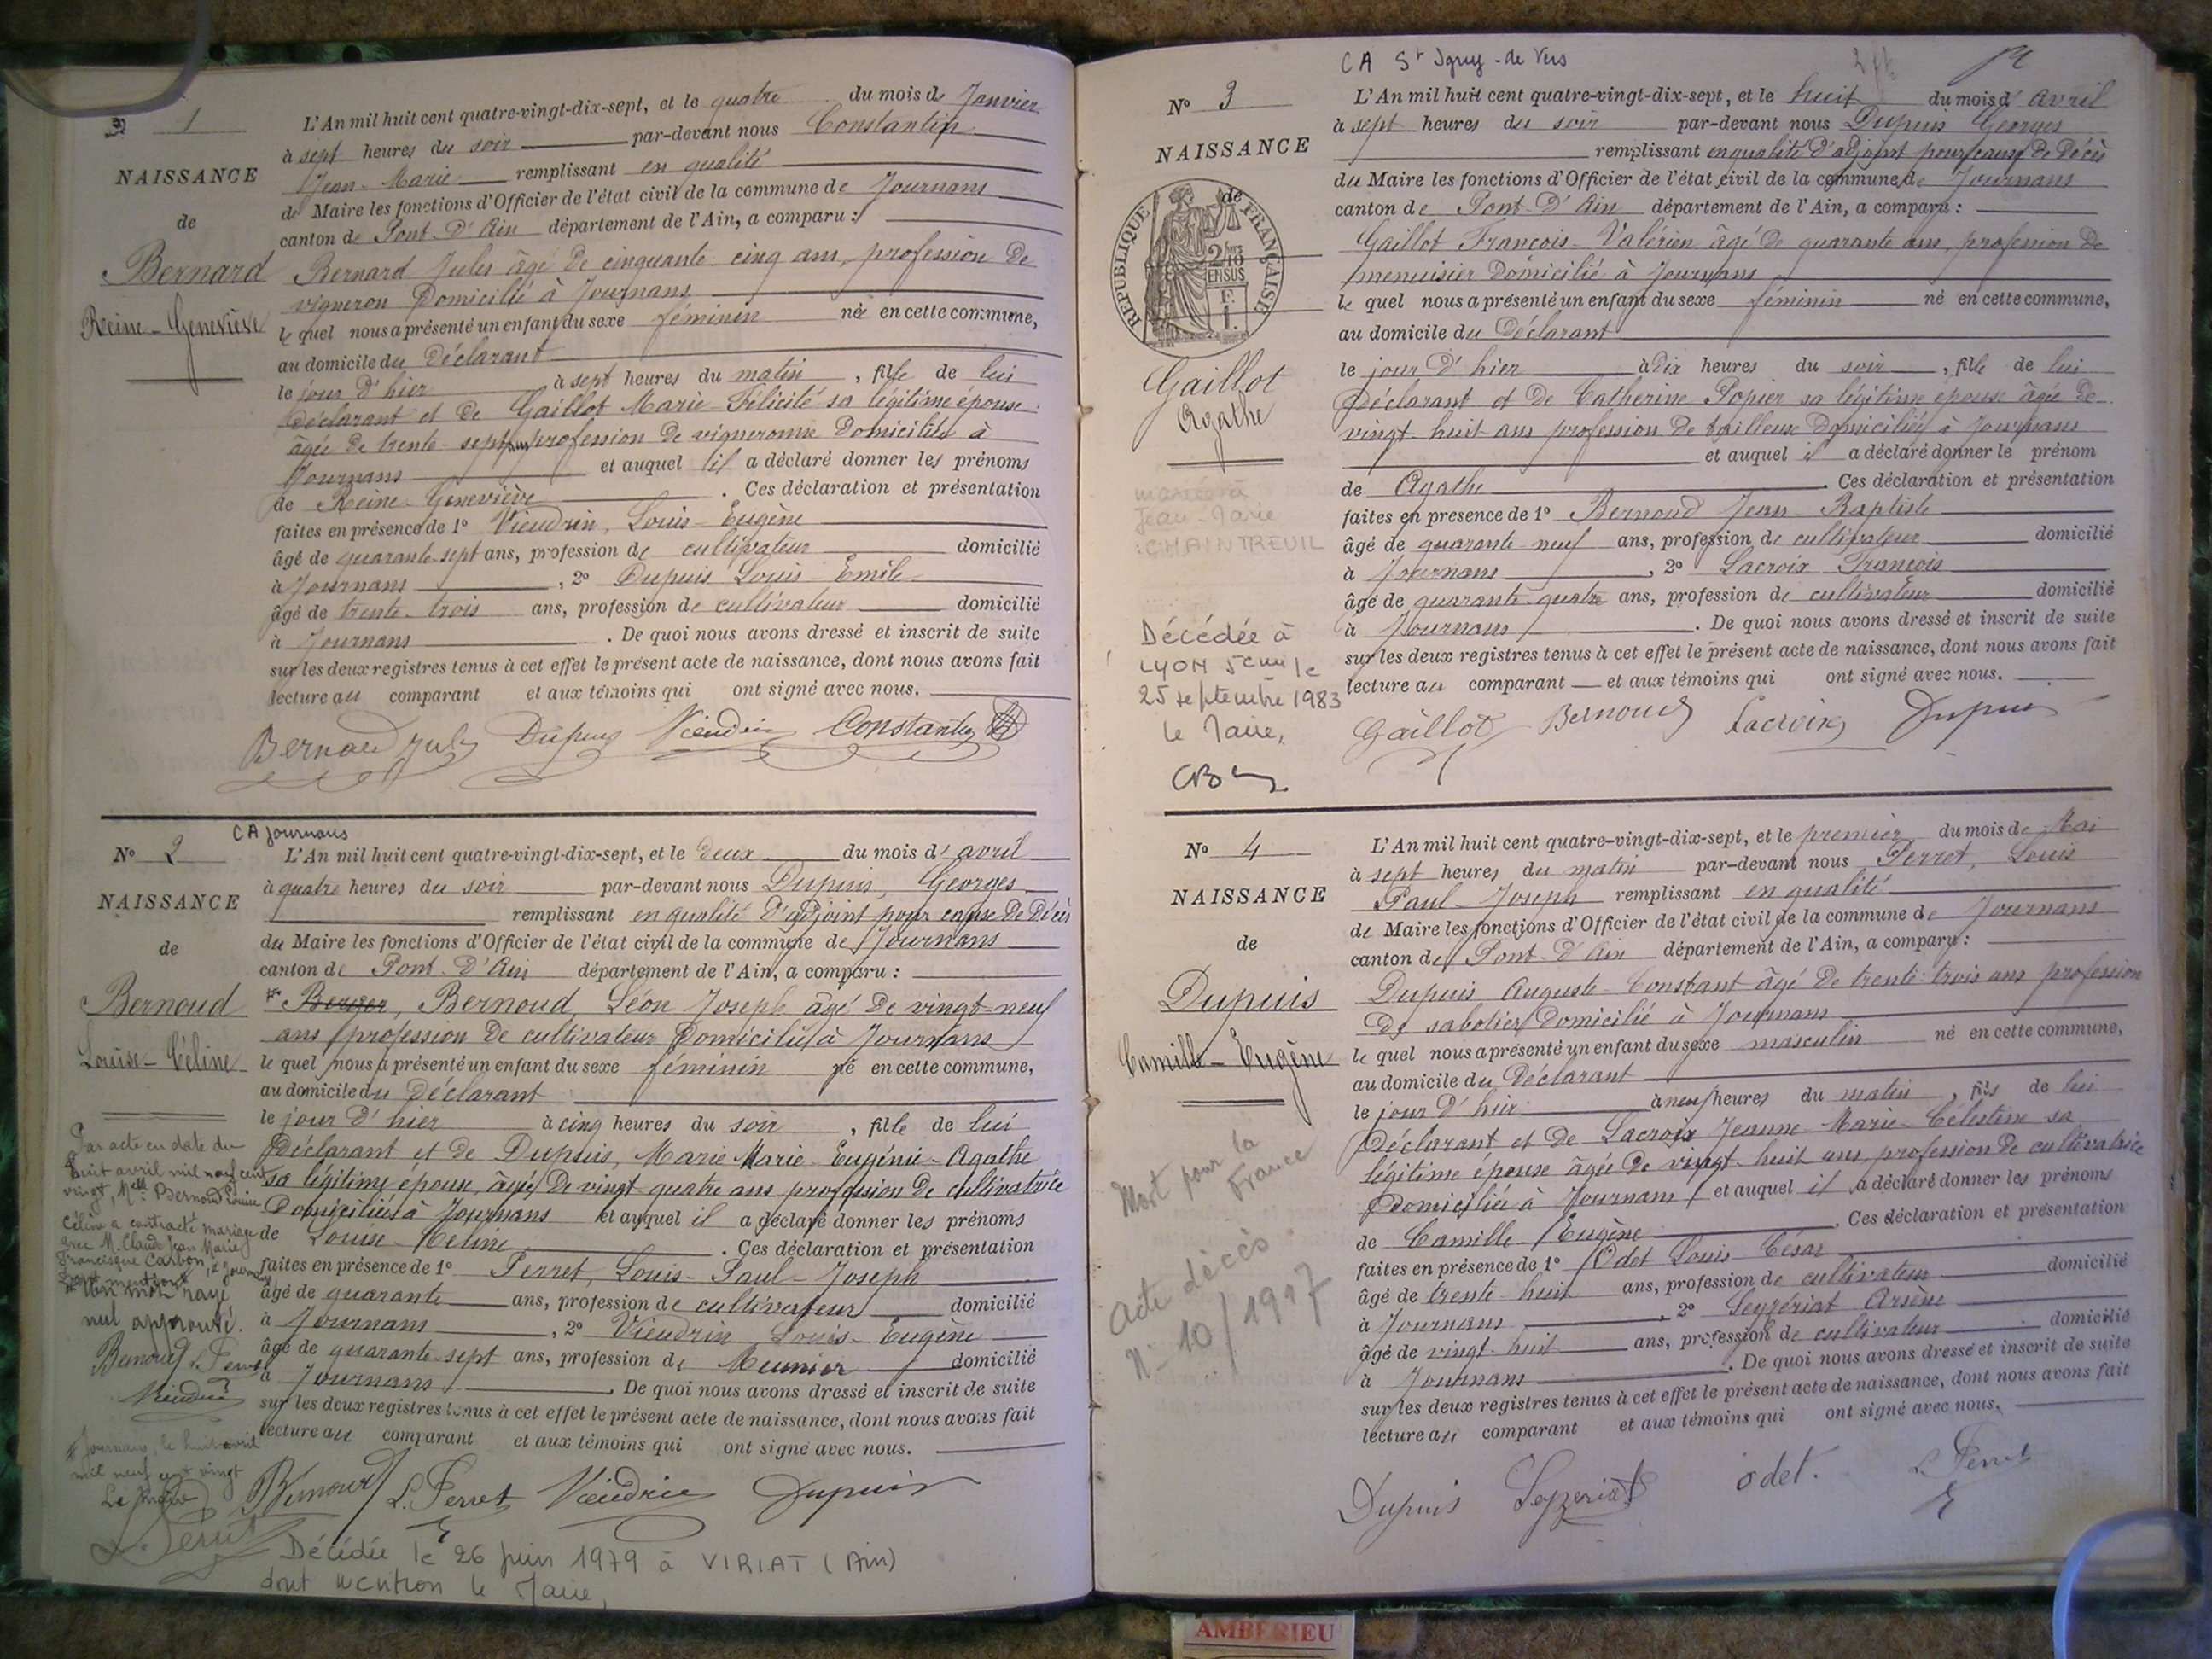 N° 1
NAISSANCE
de
Bernard
Reine-Geneviève
L'An mil huit cent quatre-vingt-dix-sept, et le quatre du mois de Janvier
à sept heures du soir par-devant nous Constantin
Jean-Marie remplissant en qualité
de Maire les fonctions d'Officier de l'état civil de la commune de Journans
canton de Pont-d'Ain département de l'Ain, a comparu :
Bernard Jules âgé de cinquante cinq ans, profession de
vigneron Domicilié à Journans
le quel nous a présenté un enfant du sexe féminin née en cette commune,
au domicile du Déclarant
le jour d'hier à sept heures du matin, fille de lui
Déclarant et de Gaillot Marie-Félicité sa légitime épouse
âgée de trente-sept ans profession de vigneronne Domiciliée à
Journans et auquel il a déclaré donner les prénoms
de Reine-Geneviève. Ces déclaration et présentation
faites en présence de 1° Vieudrin, Louis-Eugène
âgé de quarante-sept ans, profession de cultivateur domicilié
à Journans, 2° Dupuis Louis-Emile
âgé de trente-trois ans, profession de cultivateur domicilié
à Journans. De quoi nous avons dressé et inscrit de suite
sur les deux registres tenus à cet effet le présent acte de naissance, dont nous avons fait
lecture au comparant et aux témoins qui ont signé avec nous.
Bernard Jules Dupuis Vieudrin Constantin
CA Journans
N° 2
NAISSANCE
de
Bernoud
Louise-Céline
L'An mil huit cent quatre-vingt-dix-sept, et le deux du mois d'avril
à quatre heures du soir par-devant nous Dupuis, Georges
remplissant en qualité d'adjoint pour cause de Décès
du Maire les fonctions d'Officier de l'état civil de la commune de Journans
canton de Pont-d'Ain département de l'Ain, a comparu :
Berger, Bernoud, Léon Joseph âgé de vingt-neuf
ans profession de cultivateur Domicilié à Journans
le quel nous a présenté un enfant du sexe féminin né en cette commune,
au domicile du Déclarant
le jour d'hier à cinq heures du soir, fille de lui
Déclarant et de Dupuis, Marie Marie-Eugénie-Agathe
sa légitime épouse, âgée de vingt quatre ans profession de cultivatrice
Domiciliée à Journans et auquel il a déclaré donner les prénoms
de Louise-Céline. Ces déclaration et présentation
faites en présence de 1° Perret, Louis-Paul-Joseph
âgé de quarante ans, profession de cultivateur domicilié
à Journans, 2° Vieudrin Louis-Eugène
âgé de quarante-sept ans, profession de Meunier domicilié
à Journans. De quoi nous avons dressé et inscrit de suite
sur les deux registres tenus à cet effet le présent acte de naissance, dont nous avons fait
lecture au comparant et aux témoins qui ont signé avec nous.
Par acte en date du
huit avril mil neuf cent
vingt, Melle Bernoud Louise
Céline a contracté mariage
avec M. Claude Jean Marie
Francisque Carbon, à Journans
dont mention
Un mot rayé
nul approuvé.
Bernoud L. Perret
Vieudrin
Journans, le huit avril
mil neuf cent vingt
Le Maire
L. Perret
Bernoud L. Perret Vieudrin Dupuis
Décédée le 26 juin 1979 à VIRIAT (Ain)
dont mention le Maire,
CA St Igny-de Vers
N° 3
NAISSANCE
de
RÉPUBLIQUE FRANÇAISE
2/10 EN SUS
Gaillot
Agathe
L'An mil huit cent quatre-vingt-dix-sept, et le huit du mois d'avril
à sept heures du soir par-devant nous Dupuis Georges
remplissant en qualité d'adjoint pour cause de Décès
du Maire les fonctions d'Officier de l'état civil de la commune de Journans
canton de Pont-d'Ain département de l'Ain, a comparu :
Gaillot François-Valérien âgé de quarante ans, profession de
menuisier Domicilié à Journans
le quel nous a présenté un enfant du sexe féminin né en cette commune,
au domicile du Déclarant
le jour d'hier à dix heures du soir, fille de lui
Déclarant et de Catherine Popier sa légitime épouse âgée de
vingt-huit ans profession de tailleuse Domiciliée à Journans
et auquel il a déclaré donner le prénom
de Agathe. Ces déclaration et présentation
faites en présence de 1° Bernoud Jean-Baptiste
âgé de quarante-neuf ans, profession de cultivateur domicilié
à Journans, 2° Lacroix François
âgé de quarante-quatre ans, profession de cultivateur domicilié
à Journans. De quoi nous avons dressé et inscrit de suite
sur les deux registres tenus à cet effet le présent acte de naissance, dont nous avons fait
lecture au comparant et aux témoins qui ont signé avec nous.
mariée à
Jean-Marie
CHAINTREUIL
Décédée à
LYON 5eme le
25 septembre 1983
le Maire,
Gaillot Bernoud Lacroix Dupuis
N° 4
NAISSANCE
de
Dupuis
Camille-Eugène
L'An mil huit cent quatre-vingt-dix-sept, et le premier du mois de Mai
à sept heures du matin par-devant nous Perret, Louis
Paul-Joseph remplissant en qualité
de Maire les fonctions d'Officier de l'état civil de la commune de Journans
canton de Pont-d'Ain département de l'Ain, a comparu :
Dupuis Auguste-Constant âgé de trente-trois ans profession
de sabotier Domicilié à Journans
le quel nous a présenté un enfant du sexe masculin né en cette commune,
au domicile du Déclarant
le jour d'hier à neuf heures du matin, fils de lui
Déclarant et de Lacroix Jeanne-Marie-Célestine sa
légitime épouse âgée de vingt-huit ans, profession de cultivatrice
Domiciliée à Journans et auquel il a déclaré donner les prénoms
de Camille-Eugène. Ces déclaration et présentation
faites en présence de 1° Odet Louis-César
âgé de trente-huit ans, profession de cultivateur domicilié
à Journans, 2° Seyzériat Arsène
âgé de vingt-huit ans, profession de cultivateur domicilié
à Journans. De quoi nous avons dressé et inscrit de suite
sur les deux registres tenus à cet effet le présent acte de naissance, dont nous avons fait
lecture au comparant et aux témoins qui ont signé avec nous.
Mort pour la
France
Acte décès
N° 10/1917
Dupuis Seyzeriat odet. L. Perret
AMBERIEU